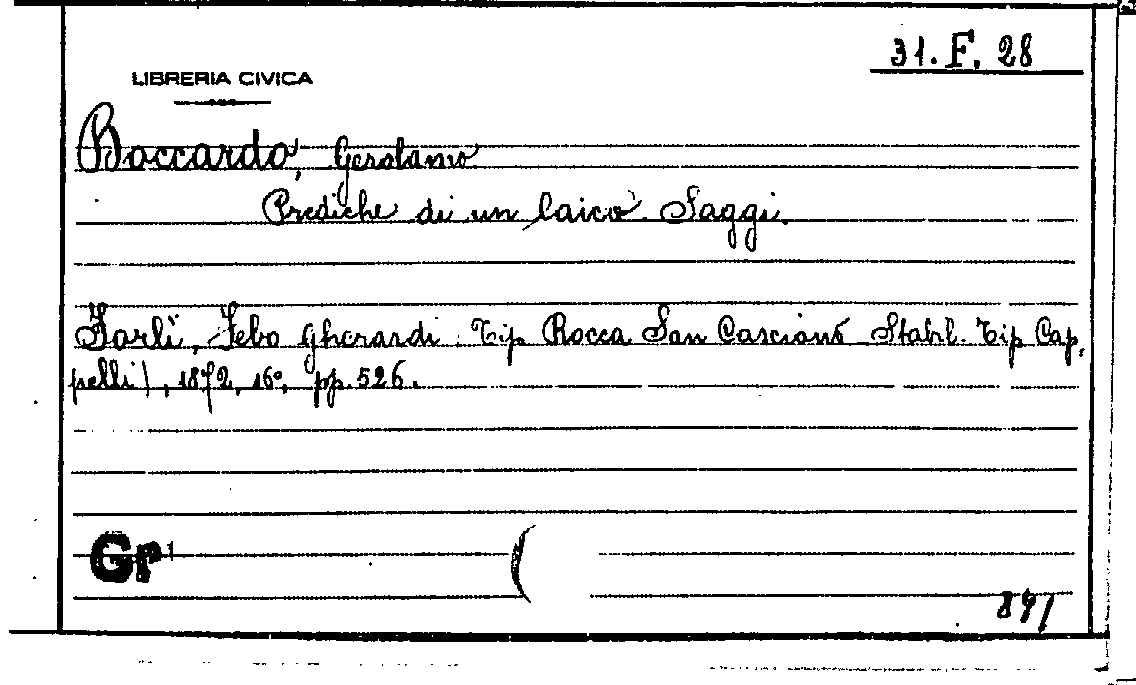 31. F. 28
LIBRERIA CIVICA
Boccardo, Gerolamo
Prediche di un laico Saggi.
Forlì, Febo Gherardi. Tip Rocca San Casciano Stabil. Tip Cap.
pelli), 1872, 16°, pp. 526.
Gr
891